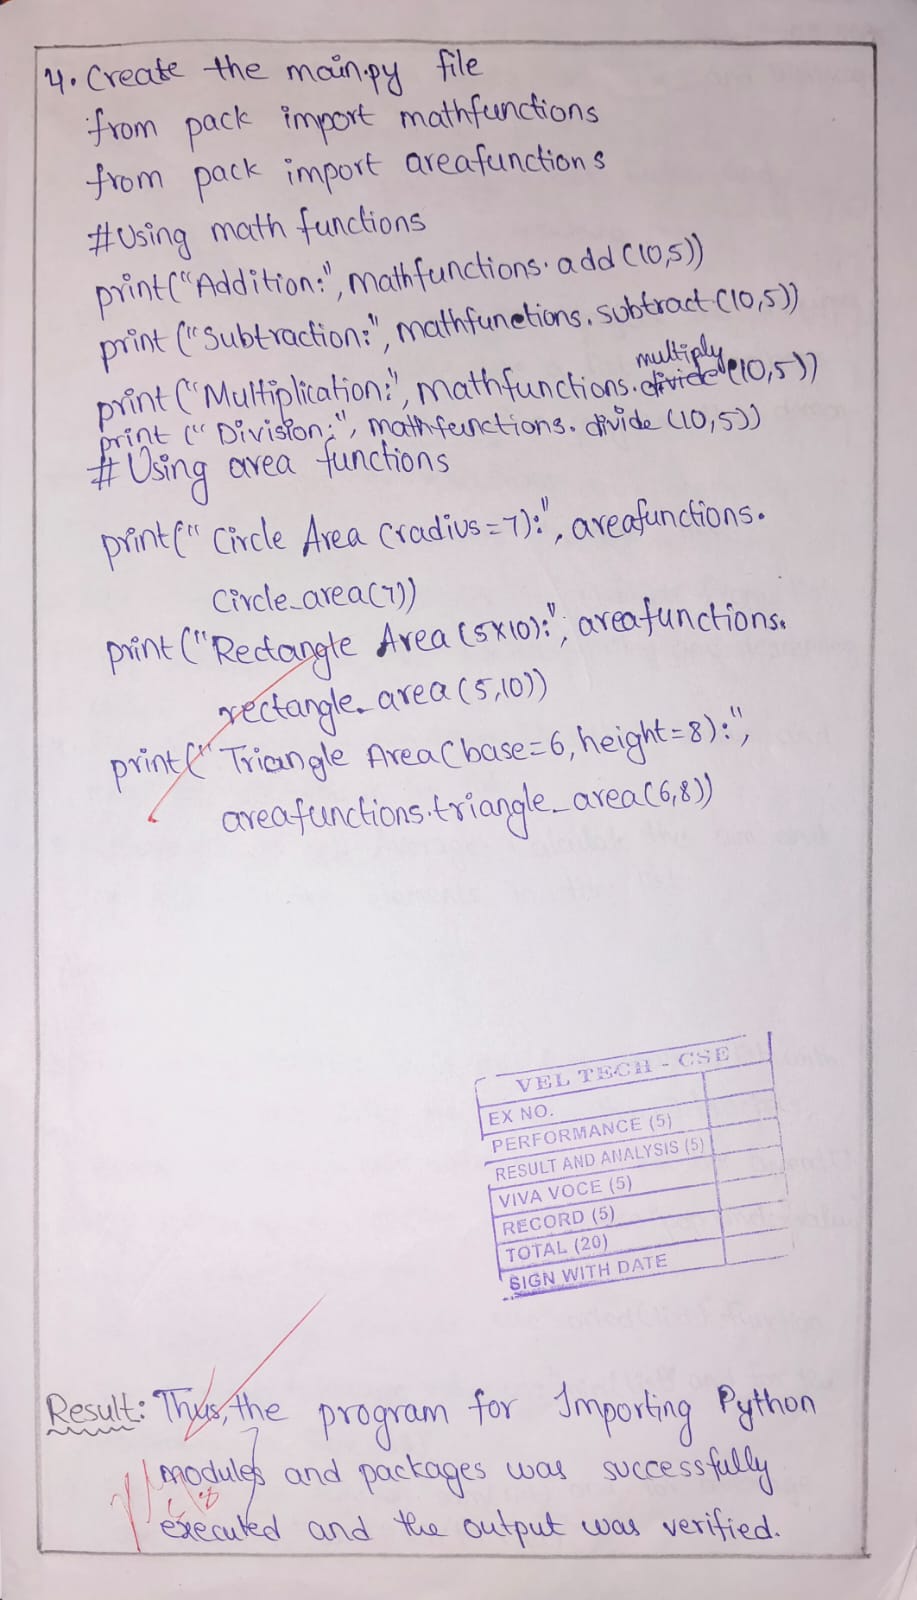 4. Create the main.py file
from pack import mathfunctions
from pack import areafunctions
#Using math functions
print("Addition:", mathfunctions.add(10,5))
print("Subtraction:", mathfunctions.subtract(10,5))
multiply
print("Multiplication:", mathfunctions.divide(10,5))
print("Division:", mathfunctions.divide(10,5))
# Using area functions
print("Circle Area (radius=7):", areafunctions.
circle_area(7))
print("Rectangle Area (5x10):", areafunctions.
rectangle_area(5,10))
print("Triangle Area(base=6, height=8):",
areafunctions.triangle_area(6,8))
VEL TECH - CSE
EX NO.
PERFORMANCE (5)
RESULT AND ANALYSIS (5)
VIVA VOCE (5)
RECORD (5)
TOTAL (20)
SIGN WITH DATE
Result: Thus, the program for Importing Python
modules and packages was successfully
executed and the output was verified.